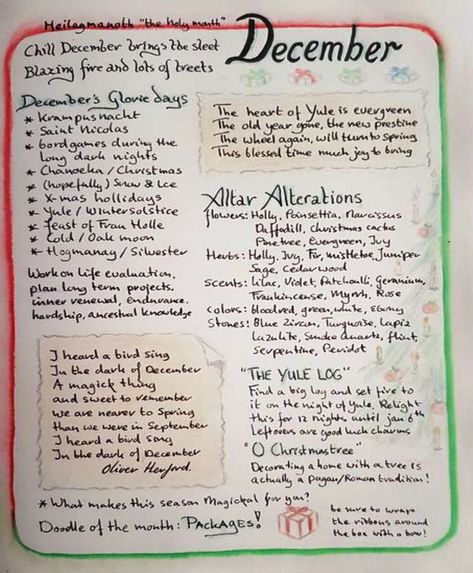 Heilagmanoth "the holy month"
December
Chill December brings the sleet
Blazing fire and lots of treets
December's Glorie days
* Krampusnacht
* Saint Nicolas
* bordgames during the
long dark nights
* Chanoeka / Christmas
* (hopefully) Snow & Ice
* X-mas hollidays
* Yule / Wintersolstice
* feast of Frau Holle
* Cold / Oak moon
* Hogmanay / Silvester
Work on life evaluation,
plan long term projects.
inner renewal, endurance.
hardship, ancestral knowledge
The heart of Yule is evergreen
The old year gone, the new prestine
The wheel again, will turn to Spring
This blessed time much joy to bring
Altar Alterations
flowers: Holly, Poinsettia, Narcissus
Daffodill, Christmas cactus
Pinetree, Evergreen, Ivy
Herbs: Holly, Ivy, Fir, mistletoe, Juniper
Sage, Cedarwood
Scents: Lilac, Violet, Patchoulli, Geranium,
Frankincense, Myrrh, Rose
Colors: bloodred, green, white, Ebony
Stones: Blue Zircon, Turquoise, Lapiz
Lazulite, Smoke Quartz, flint,
Serpentine, Peridot
I heard a bird sing
In the dark of December
A magick thing
and sweet to remember
we are nearer to Spring
than we were in September
I heard a bird sing
In the dark of December
Oliver Herford.
"THE YULE LOG"
Find a big log and set fire to
it on the night of Yule. Relight
this for 12 nights, until jan 6th
Leftovers are good luck charms
"O Christmastree"
Decorating a home with a tree is
actually a pagan/Roman tradition!
* What makes this season Magickal for you?
Doodle of the month: PACKAGES!
be sure to wrap
the ribbons around
the box with a bow!